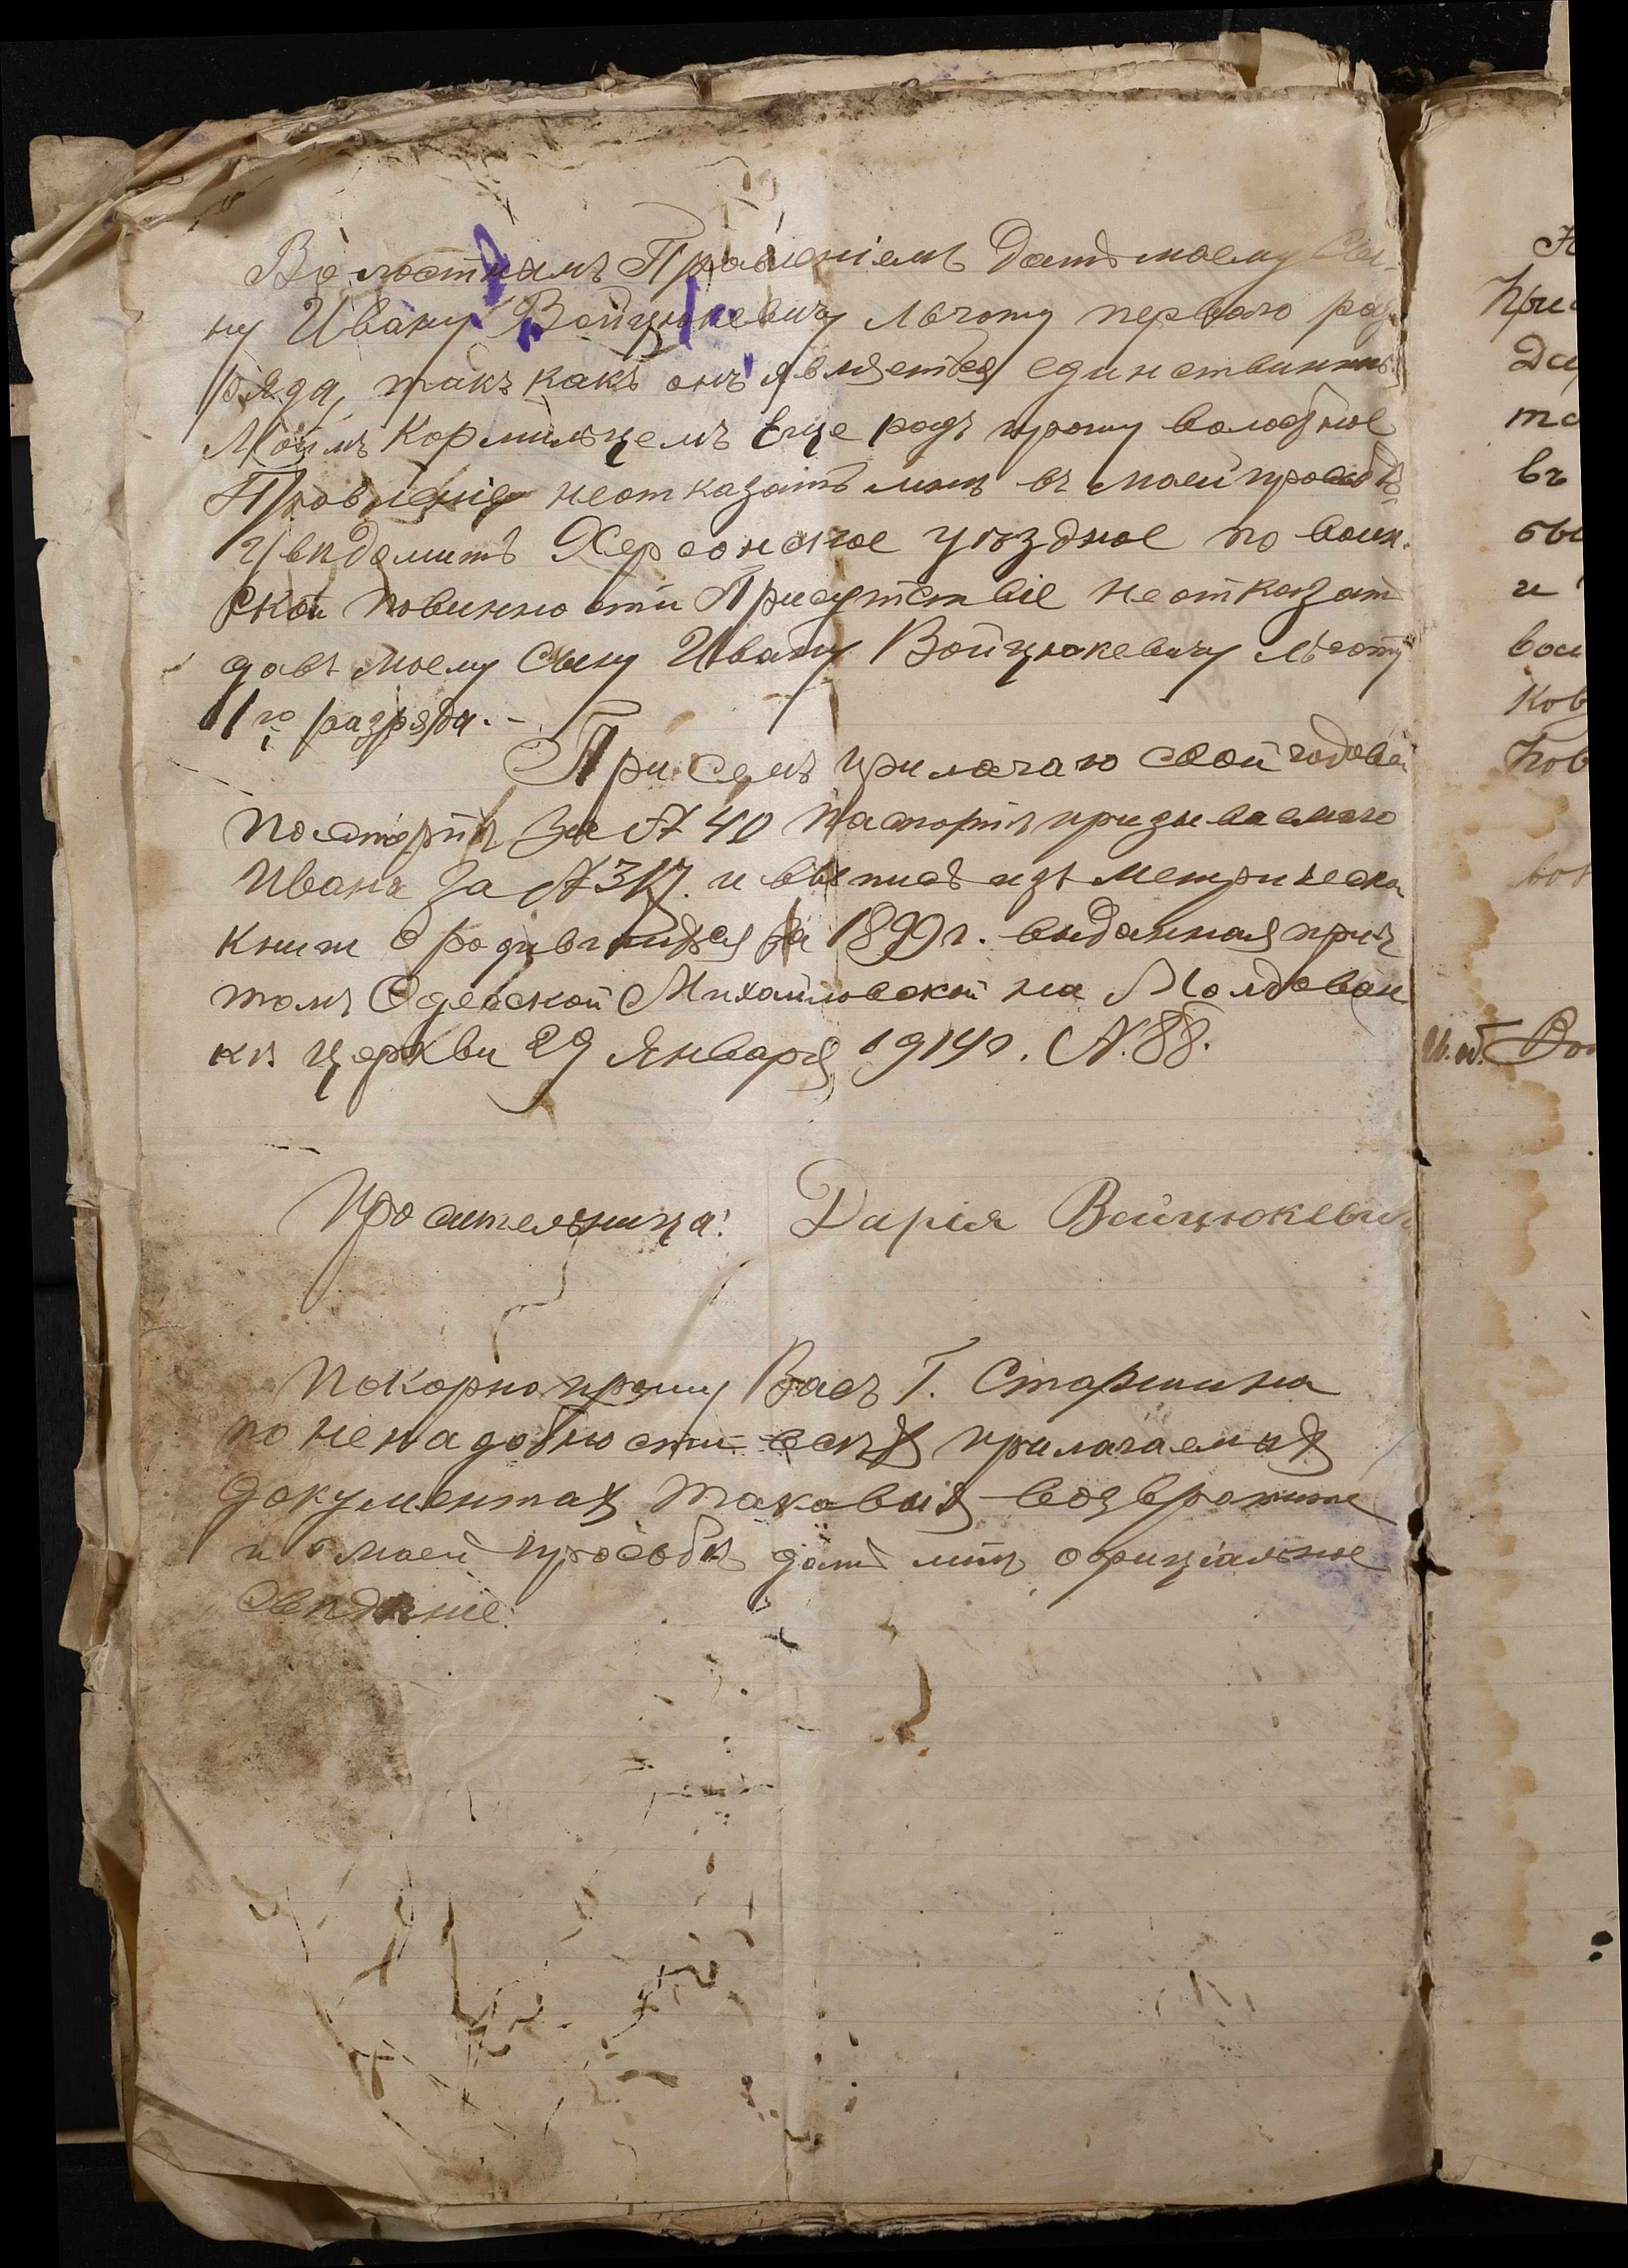 Волостнымъ Правленіемъ дать моему Сы-
ну Ивану Войцюкевичу льготу перваго раз-
ряда, такъ какъ онъ является единственнымъ
Моимъ Кормильцемъ Еще разъ прошу волостное
Правленіе неотказать мнѣ въ моей просьбѣ
Увѣдомить Херсонское уѣздное по воин-
ской повинности Присутствіе не отказать
давъ моему Сыну Ивану Войцюкевичу льготу
1го разряда. -
При семъ прилагаю свой годовой
за № 40 паспортъ призываемаго
Ивана за № 317. и выпись изъ Метрическ
книги о родившихся за 1899г. выданная прич
томъ Одесской Михайловской на Молдаван
кѣ церкви 29 Января 1914г. №.88.
Просительница: Дарія Войцюкевич
Покорно прошу Васъ Г. Старшина
по ненадобности всѣхъ прилагаемыхъ
документахъ таковыя возвратите
и о моей просьбѣ дать мнѣ офиціальное
Свѣдѣніе.
Прис
то
въ
и
вои
Ков
Пов
И. об. Во